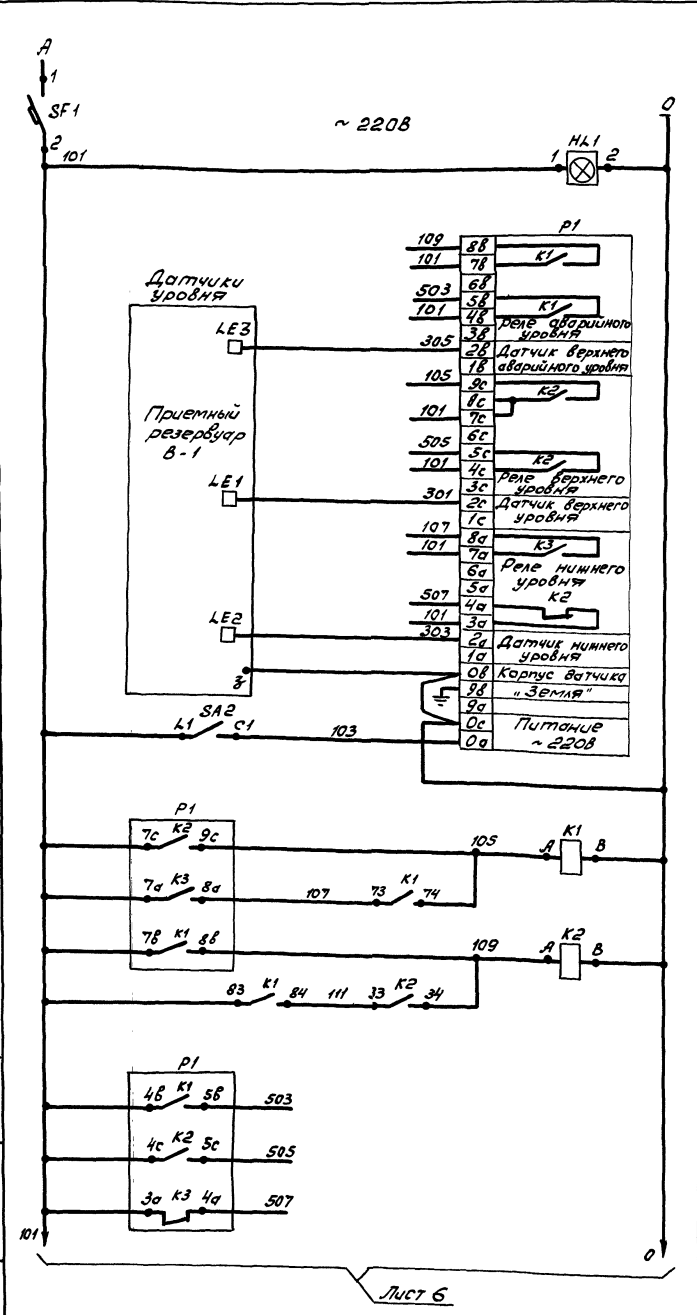 А
1
SF1
2
101
~ 220В
0
HL1
1
2
Р1
Датчики
уровня
LE3
Приемный
резервуар
В-1
LE1
LE2
з
109
8в
К1
101
7в
6в
503
5в
К1
101
4в
Реле аварийного
уровня
3в
305
2в
Датчик верхнего
аварийного уровня
1в
105
9с
К2
8с
101
7с
6с
505
5с
К2
101
4с
Реле верхнего
уровня
3с
301
2с
Датчик верхнего
уровня
1с
107
8а
К3
101
7а
Реле нижнего
уровня
6а
5а
К2
507
4а
101
3а
303
2а
Датчик нижнего
уровня
1а
0в
Корпус датчика
9в
„Земля"
9а
0с
Питание
~ 220В
0а
L1
SA2
С1
103
Р1
7с К2 9с
105
А
К1
В
7а К3 8а
107
73 К1 74
7в К1 8в
109
А
К2
В
83 К1 84
111
33 К2 34
Р1
4в К1 5в
503
4с К2 5с
505
3а К3 4а
507
101
0
Лист 6